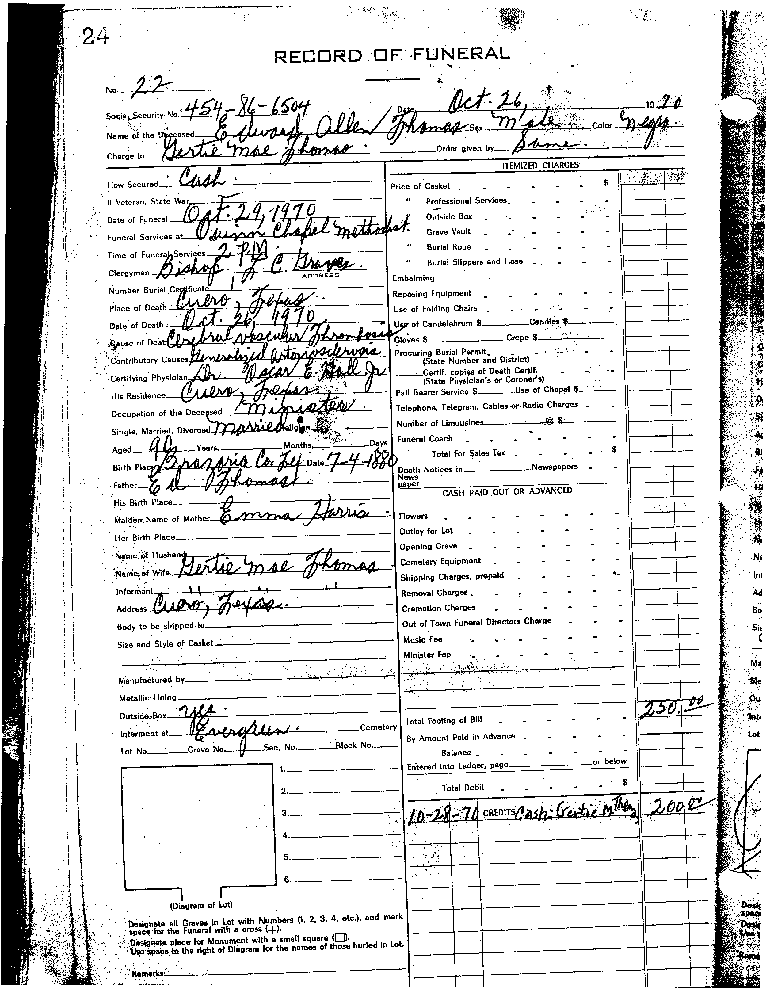 24
RECORD OF FUNERAL
No. 22
Social Security No. 454-86-6504 Date Oct. 26, 1970
Name of the Deceased Edward Allen Thomas Sex Male Color Negro.
Charge to Gertie Mae Thomas. Order given by Same.
How Secured Cash.
If Veteran, State War
Date of Funeral Oct. 29, 1970
Funeral Services at Chapel Methodist.
Time of Funeral Services 2 PM
Clergyman Bishop C. Graves
ADDRESS
Number Burial Certificate
Place of Death Cuero, Texas
Date of Death Oct. 26, 1970
Cause of Death Cerebral vascular Thrombosis
Contributory Causes Generalized Arteriosclerosis
Certifying Physician Dr. Oscar E. Hall Jr
His Residence Cuero, Texas
Occupation of the Deceased Minister
Single, Married, Divorced Married
Aged 90 Years Months Days
Birth Place Brazoria Co. Tex Date 7-4-1880
Father Ed Thomas
His Birth Place
Maiden Name of Mother Emma Harris
Her Birth Place
Name of Husband
Name of Wife Gertie Mae Thomas
Informant " "
Address Cuero, Texas.
Body to be shipped to
Size and Style of Casket
Manufactured by
Metallic Lining
Outside Box yes
Interment at Evergreen. Cemetery
Lot No. Grave No. Sec. No. Block No.
1.
2.
3.
4.
5.
6.
(Diagram of Lot)
Designate all Graves in Lot with Numbers (1, 2, 3, 4, etc.), and mark
space for the Funeral with a cross (+).
Designate place for Monument with a small square (□).
Use space to the right of Diagram for the names of those buried in Lot.
Remarks
ITEMIZED CHARGES
Price of Casket $
" Professional Services
Outside Box
" Grave Vault
" Burial Robe
" Burial Slippers and Hose
Embalming
Reposing Equipment
Use of Folding Chairs
Use of Candelabrum $ Candles $
Gloves $ Crepe $
Procuring Burial Permit
(State Number and District)
Certif. copies of Death Certif.
(State Physician's or Coroner's)
Pall Bearer Service $ Use of Chapel $
Telephone, Telegram, Cables or Radio Charges
Number of Limousines @ $
Funeral Coach
Total for Sales Tax $
Death Notices in Newspapers
News
paper
CASH PAID OUT OR ADVANCED
Flowers
Outlay for Lot
Opening Grave
Cemetery Equipment
Shipping Charges, prepaid
Removal Charges
Cremation Charges
Out of Town Funeral Directors Charge
Music Fee
Minister Fee
Total Footing of Bill 250.00
By Amount Paid in Advance
Balance
Entered into Ledger, page or below
Total Debit $
10-28-70 CREDITS Cash-Gertie M 200.00